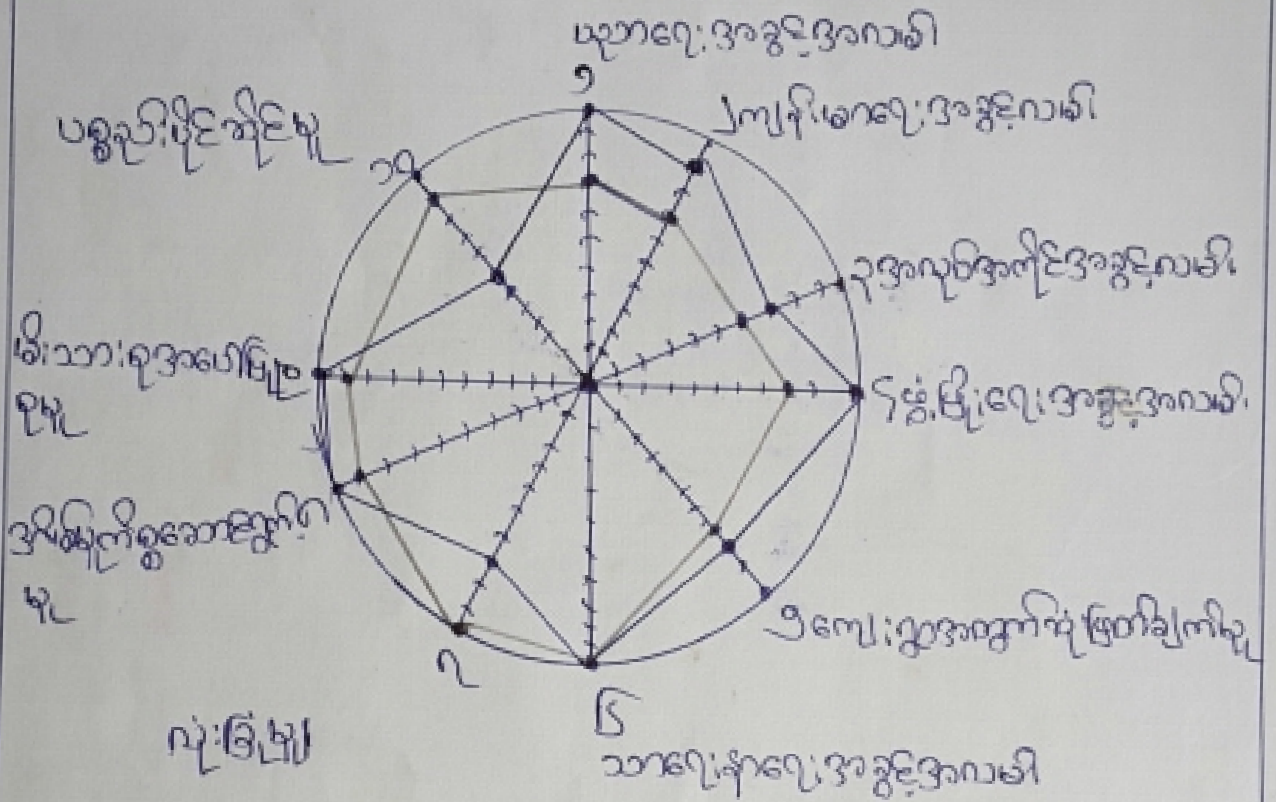 ပညာရေးအခွင့်အလမ်း
၁
၂ကျန်းမာရေးအခွင့်လမ်း
၃အလုပ်အကိုင်အခွင့်လမ်း
၄ဖွံ့ဖြိုးရေးအခွင့်အလမ်း
၅ကျေးရွာအတွက်ဆုံးဖြတ်ချက်မှု
၆
သာရေးနာရေးအခွင့်အလမ်း
၇
လုံးခြုံမှု
၈
မှု
မိသားစုအပေါ်ပြုစု
၉
မှု
၁၀
ပစ္စည်းပိုင်ဆိုင်မှု